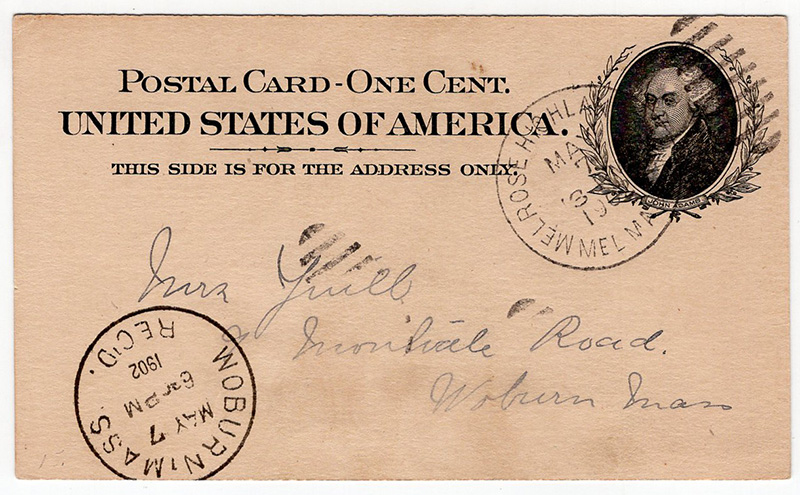 POSTAL CARD - ONE CENT.
UNITED STATES OF AMERICA.
THIS SIDE IS FOR THE ADDRESS ONLY.
JOHN ADAMS
MELROSE HIGHLA
MA
Mrs
Road.
Woburn Mass
WOBURN, MASS.
REC'D.
1902
6 30 PM
MAY 7